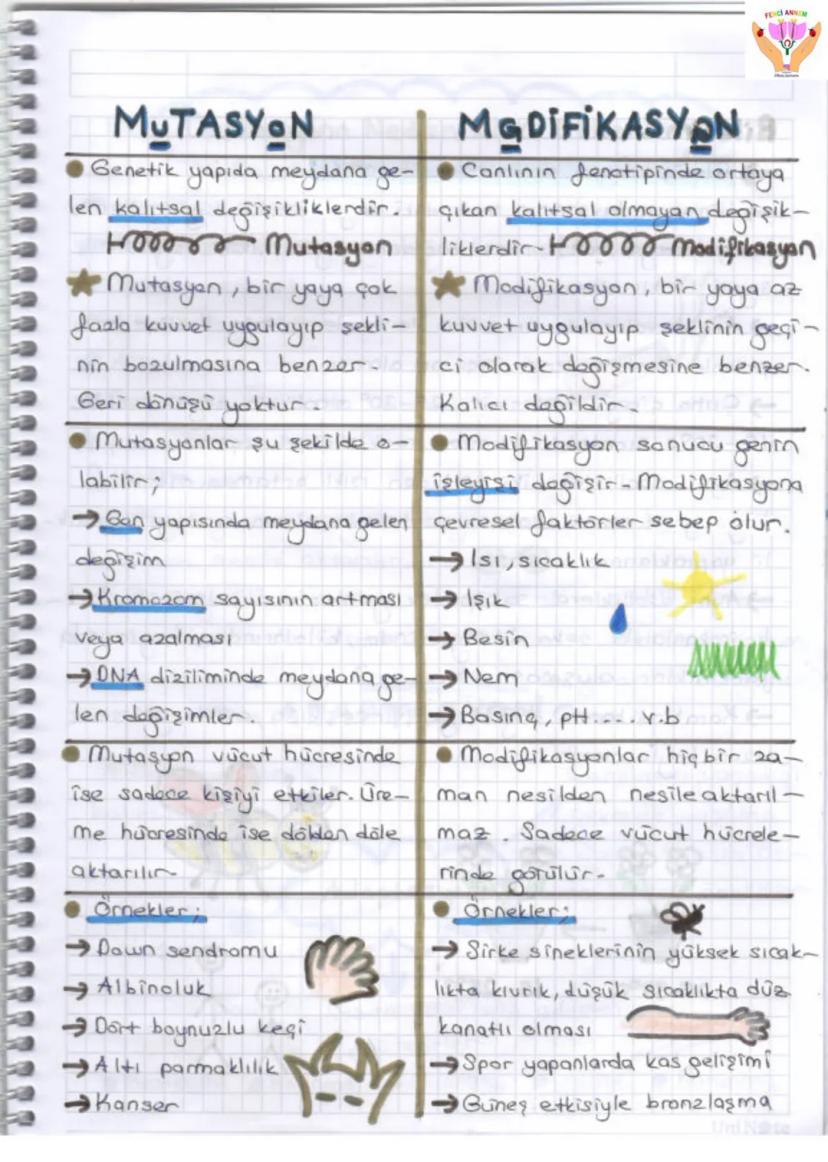 FENCİ ANNEM
MUTASYON
Genetik yapıda meydana ge-
len kalıtsal değişikliklerdir.
Mutasyon
Mutasyon, bir yaya çok
fazla kuvvet uygulayıp şekli-
nin bozulmasına benzer.
Geri dönüşü yoktur.
Mutasyonlar şu şekilde o-
labilir;
→ Gen yapısında meydana gelen
değişim
→ Kromozom sayısının artması
veya azalması
→ DNA diziliminde meydana ge-
len değişimler.
Mutasyon vücut hücresinde
ise sadece kişiyi etkiler. Üre-
me hücresinde ise dölden döle
aktarılır.
Örnekler;
→ Down sendromu
→ Albinoluk
→ Dört boynuzlu keçi
→ Altı parmaklılık
→ Kanser
MODİFİKASYON
Canlının fenotipinde ortaya
çıkan kalıtsal olmayan değişik-
liklerdir. Modifikasyon
Modifikasyon, bir yaya az
kuvvet uygulayıp şeklinin geçi-
ci olarak değişmesine benzer.
Kalıcı değildir.
Modifikasyon sonucu genin
işleyişi değişir. Modifikasyona
çevresel faktörler sebep olur.
→ Isı, sıcaklık
→ Işık
→ Besin
→ Nem
→ Basınç, pH.... v.b
Modifikasyonlar hiçbir za-
man nesilden nesile aktarıl-
maz. Sadece vücut hücrele-
rinde görülür.
Örnekler;
→ Sirke sineklerinin yüksek sıcak-
lıkta kıvrık, düşük sıcaklıkta düz
kanatlı olması
→ Spor yapanlarda kas gelişimi
→ Güneş etkisiyle bronzlaşma
UniNote